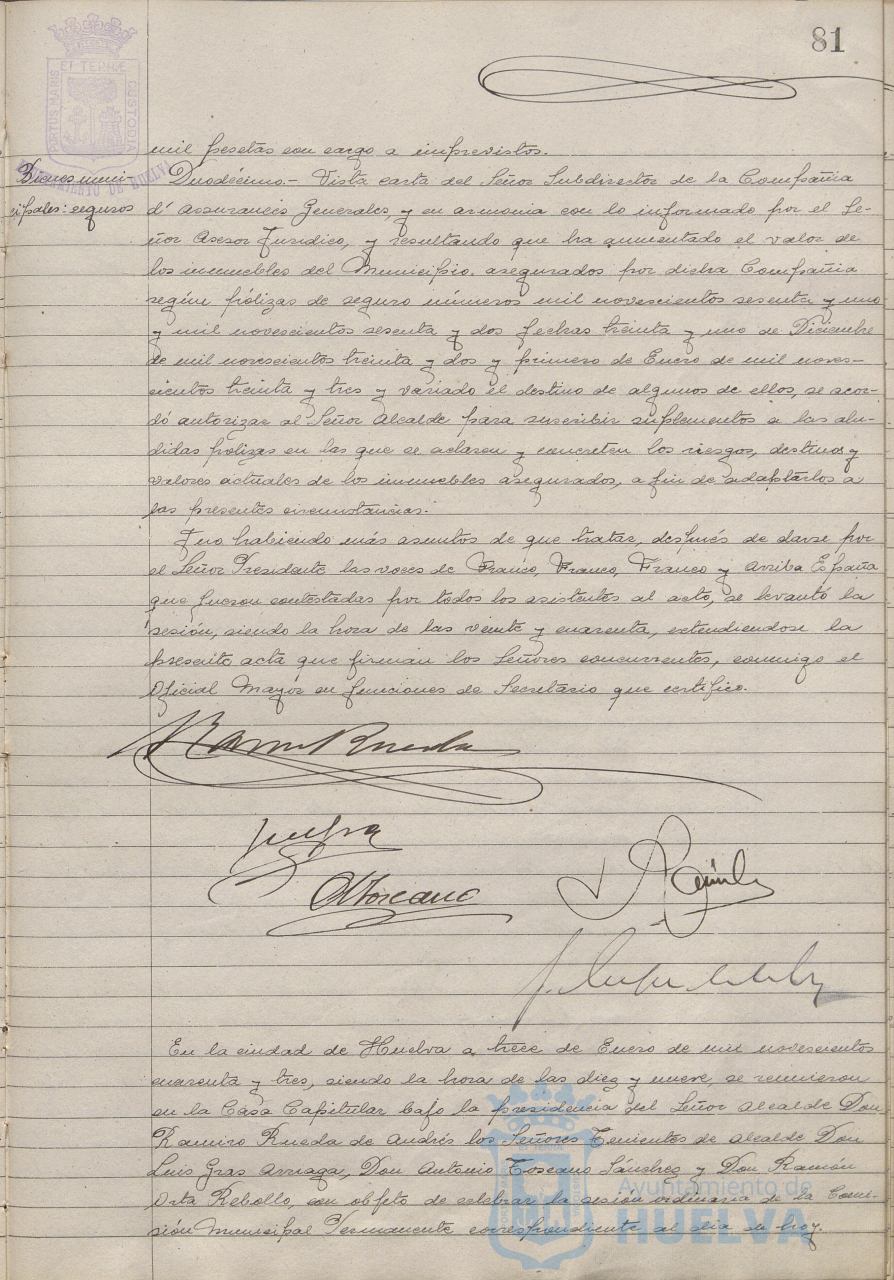 81
PORTUS MARIS ET TERRÆ CUSTODIA
AYUNTAMIENTO DE HUELVA
mil pesetas con cargo a imprevistos.
Bienes muni-
cipales: seguros
Duodécimo.- Vista carta del Señor Subdirector de la Compañia
d' Assurancés Generales, y en armonia con lo informado por el Se-
ñor Asesor Juridico, y resultando que ha aumentado el valor de
los inmuebles del Municipio asegurados por dicha Compañia
según pólizas de seguro números mil novescientos sesenta y uno
y mil novescientos sesenta y dos fechas treinta y uno de Diciembre
de mil novescientos treinta y dos y primero de Enero de mil noves-
cientos treinta y tres y variado el destino de algunos de ellos, se acor-
dó autorizar al Señor Alcalde para suscribir suplementos a las alu-
didas polizas en las que se aclaren y concreten los riesgos, destinos y
valores actuales de los inmuebles asegurados, a fin de adaptarlos a
las presentes circunstancias.
Y no habiendo más asuntos de que tratar, después de darse por
el Señor Presidente las voces de Franco, Franco, Franco y Arriba España
que fueron contestadas por todos los asistentes al acto, se levantó la
sesión, siendo la hora de las veinte y cuarenta, extendiendose la
presente acta que firman los Señores concurrentes, conmigo el
Oficial Mayor en funciones de Secretario que certifico.
Ramiro Rueda
A Toscano
En la ciudad de Huelva a trece de Enero de mil novescientos
cuarenta y tres, siendo la hora de las diez y nueve, se reunieron
en la Casa Capitular bajo la presidencia del Señor Alcalde Don
Ramiro Rueda de Andrés los Señores Tenientes de Alcalde Don
Luis Gras Arriaga, Don Antonio Toscano Sánchez y Don Ramón
Orta Rebollo, con objeto de celebrar la sesión ordinaria de la Comi-
sión Municipal Permanente correspondiente al dia de hoy.
Ayuntamiento de
HUELVA